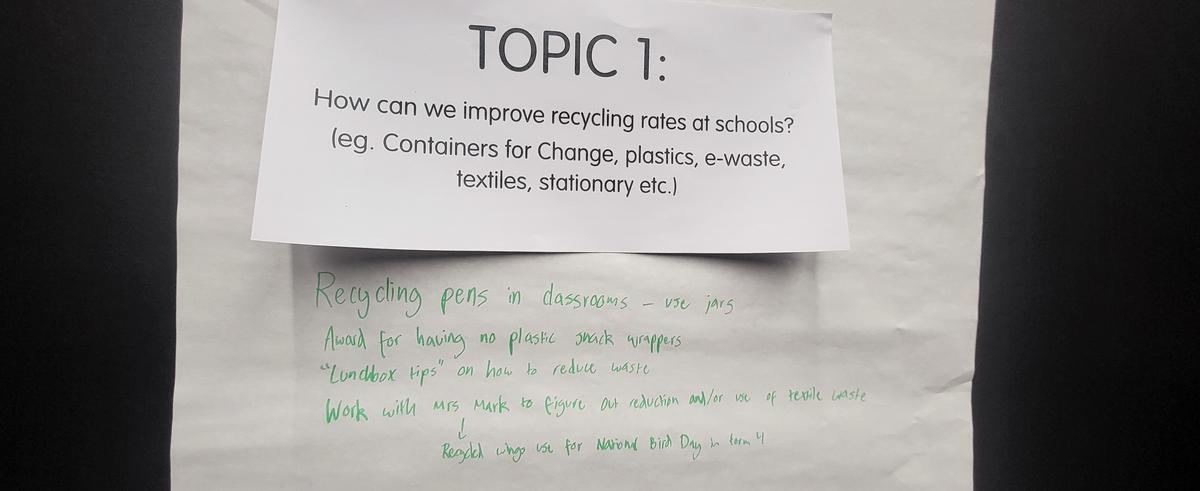 TOPIC 1:
How can we improve recycling rates at schools?
(eg. Containers for Change, plastics, e-waste,
textiles, stationary etc.)
Recycling pens in classrooms - use jars
Award for having no plastic snack wrappers
"Lunchbox tips" on how to reduce waste
Work with Mrs Mark to figure out reduction and/or use of textile waste
↓
wings use for National Bird Day in term 4